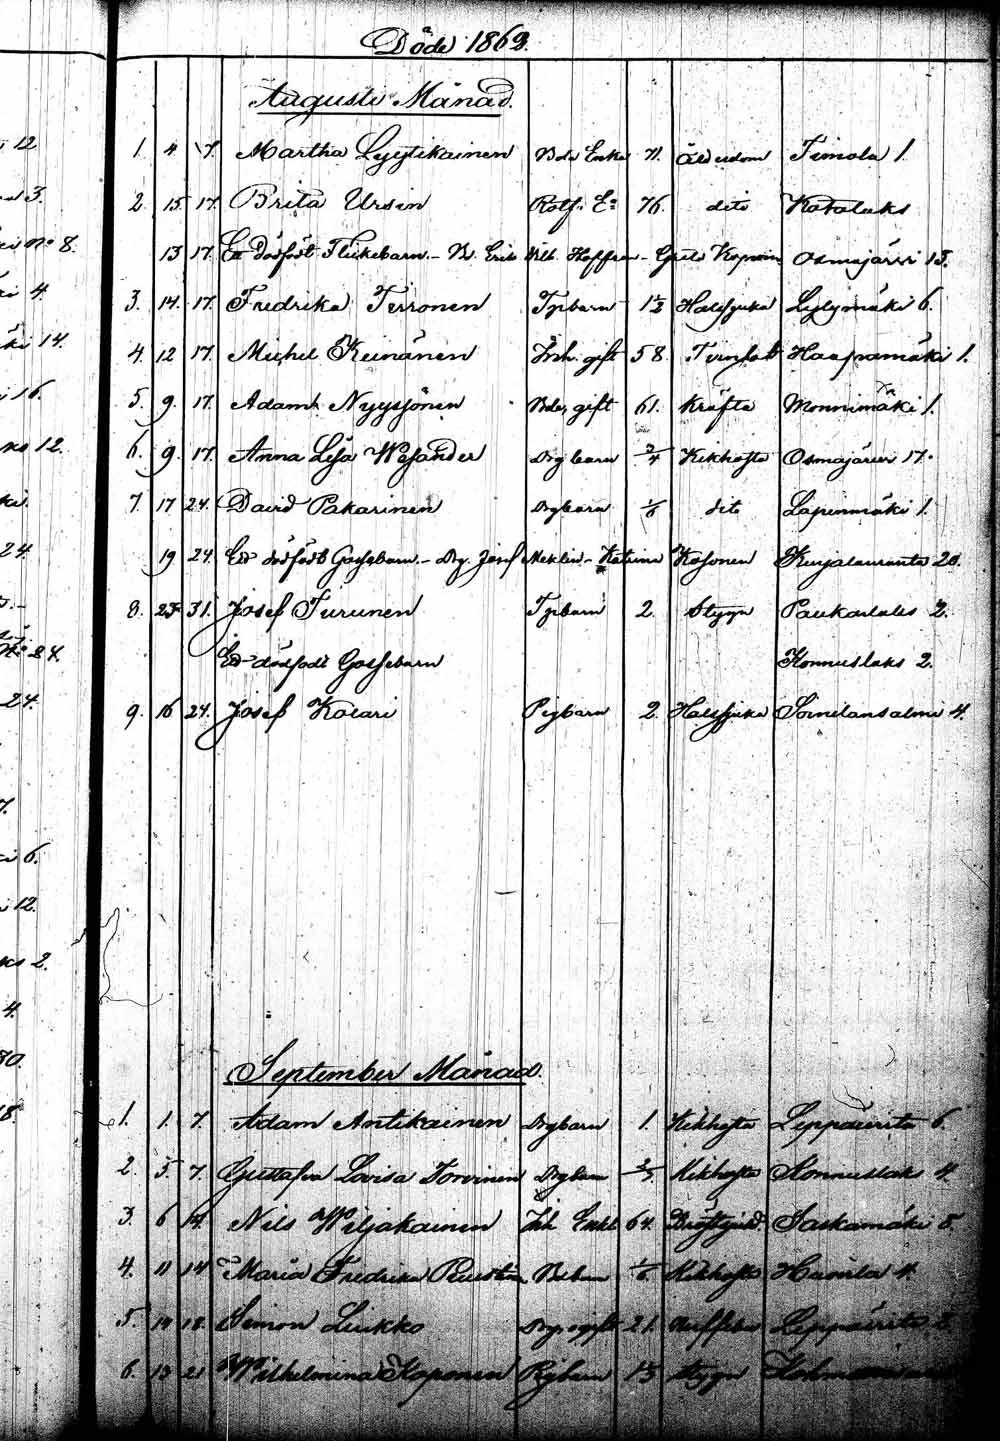 12
3.
No 8.
4.
14.
16.
12.
24.
No 24.
24.
7.
6.
12.
2.
4.
18.
Döde 1869.
Augusti Månad.
1. 4 7. Martha Lyytikainen Bde Enka 71. Ålderdom Timola 1.
2. 15. 17. Brita Ursin Rotf. E: 76. dito Kotalaks
13 17. Ett dödfödt Flickebarn. Erik Hoffrén Greta Koponin Osmajärvi 15.
3. 14. 17. Fredrika Tirronen Tjbarn 1½ Halssjuka Lylymäki 6.
4. 12 17. Michel Keinänen Inh. gift 58. Haapamäki 1.
5. 9. 17. Adam Nyyssönen Bde, gift 61. Kräfta Monnimäki 1.
6. 9. 17. Anna Lisa Wesander Drgbarn ¾ Kikhosta Osmajärvi 17.
7. 17 24. David Pakarinen Drgbarn 1/6 dito Lapinmäki 1.
19 24. Ett dödfödt Gossebarn. Drg. Josef Meklin Katrina Kosonen Kurjalanranta 20.
8. 23 31. Josef Turunen Tjbarn 2. Stygn Paukarlaks 2.
Ett dödfödt Gossebarn Konnuslaks 2.
9. 16 24. Josef Kolari Pigbarn 2. Halssjuka Soinilansalmi 4.
September Månad.
1. 1. 7. Adam Antikainen Drgbarn 1. Kikhosta Leppävirta 6.
2. 5. 7. Gustafva Lovisa Torvinen Drgbarn Kikhosta Konnuslaks 4.
3. 6 14. Nils Wiljakainen Inh Enkl 64. Bröstsjukd. Saskamäki 5.
4. 11 14 Maria Fredrika Bdebarn 1/6 Kikhosta Havirla 4.
5. 14 18. Simon Luikko Drg. ogift 21. Leppävirta 2.
6. 13 21 Wilhelmina Koponen Pigbarn Stygn